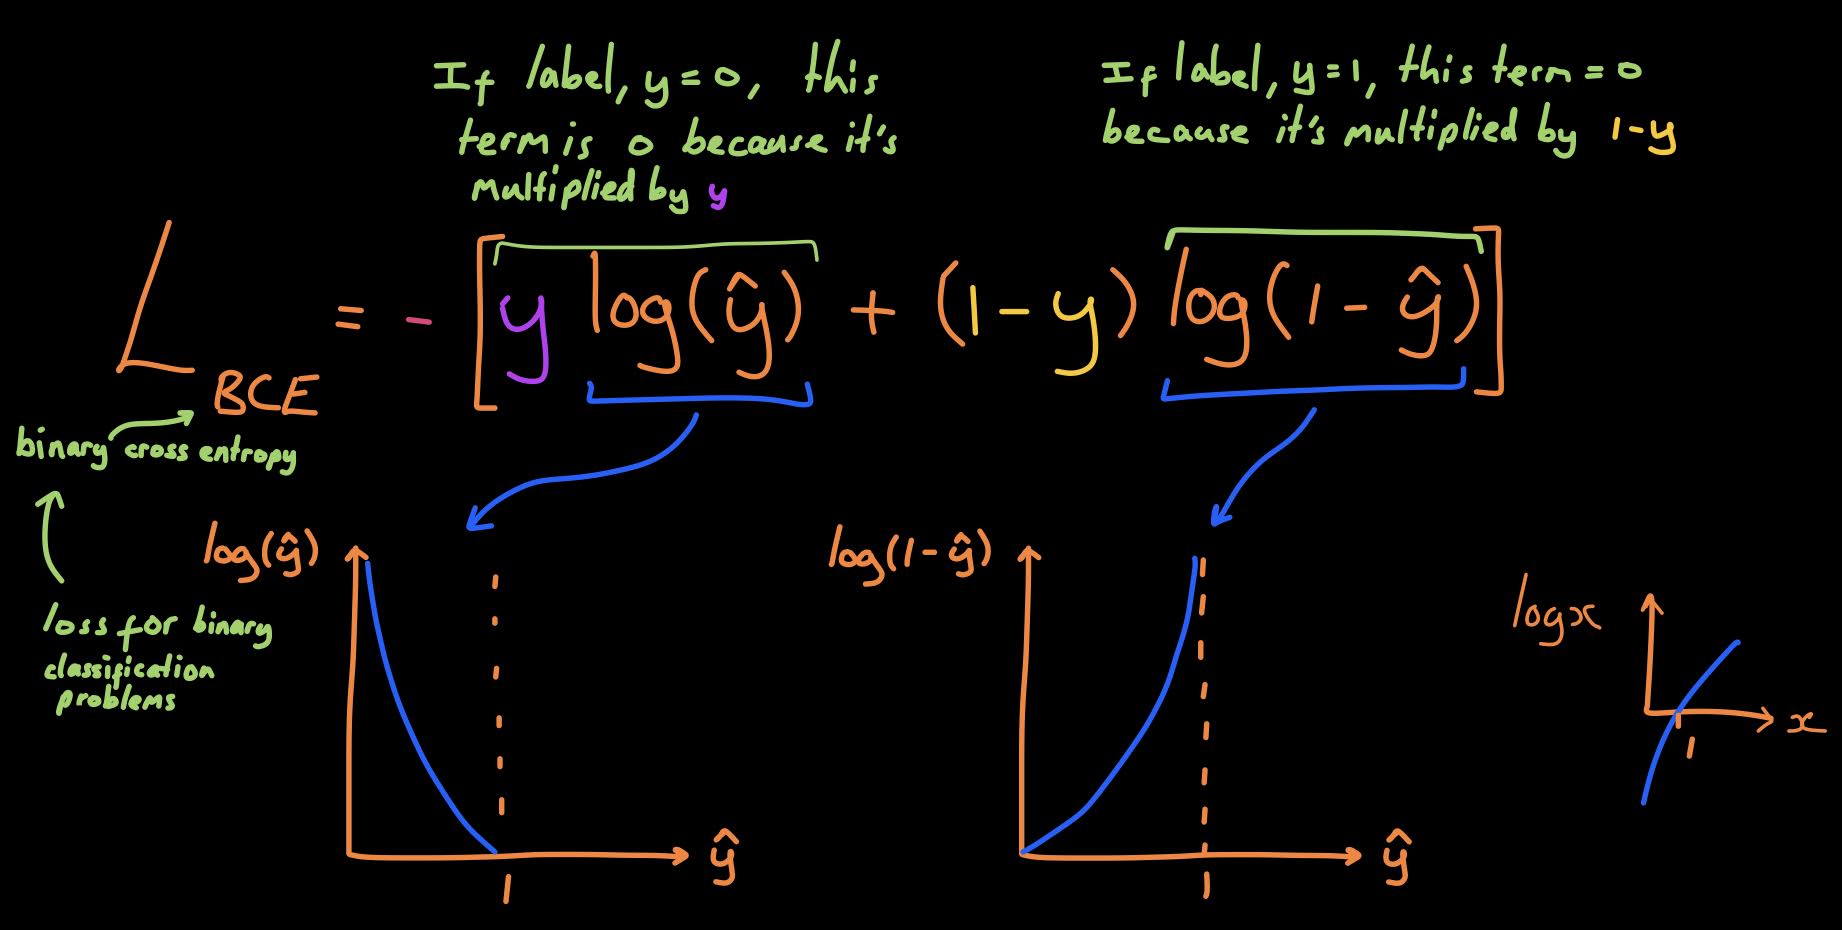 If label, y = 0, this
term is 0 because it's
multiplied by y
If label, y = 1, this term = 0
because it's multiplied by 1 - y
L BCE = - [ y log(ŷ) + (1 - y) log(1 - ŷ) ]
binary cross entropy
loss for binary
classification
problems
log(ŷ)
1
ŷ
log(1 - ŷ)
1
ŷ
log x
1
x